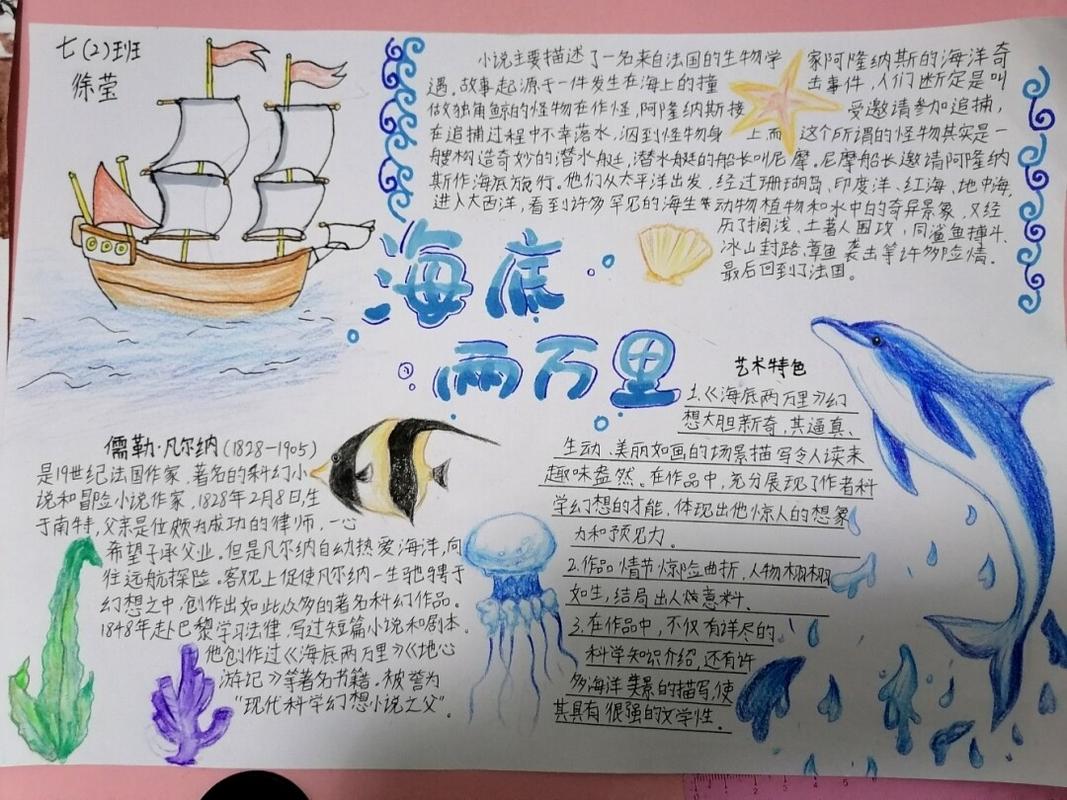 七(2)班
徐莹
小说主要描述了一名来自法国的生物学家阿隆纳斯的海洋奇
遇。故事起源于一件发生在海上的撞击事件，人们断定是叫
做独角鲸的怪物在作怪，阿隆纳斯接受邀请参加追捕，
在追捕过程中不幸落水，泅到怪物身上而这个所谓的怪物其实是一
艘构造奇妙的潜水艇，潜水艇的船长叫尼摩。尼摩船长邀请阿隆纳
斯作海底旅行。他们从太平洋出发，经过珊瑚岛、印度洋、红海、地中海，
进入大西洋，看到许多罕见的海生动物植物和水中的奇异景象，又经
历了搁浅、土著人围攻，同鲨鱼搏斗、
冰山封路、章鱼袭击等许多险情。
最后回到了法国。
海底
两万里
艺术特色
1.《海底两万里》幻
想大胆新奇，其逼真、
生动、美丽如画的场景描写令人读来
趣味盎然。在作品中，充分展现了作者科
学幻想的才能，体现出他惊人的想象
力和预见力。
2.作品情节惊险曲折，人物栩栩
如生，结局出人意料。
3.在作品中，不仅有详尽的
科学知识介绍，还有许
多海洋美景的描写，使
其具有很强的文学性。
儒勒·凡尔纳(1828—1905)
是19世纪法国作家，著名的科幻小
说和冒险小说作家，1828年2月8日，生
于南特，父亲是位颇为成功的律师，一心
希望子承父业。但是凡尔纳自幼热爱海洋，向
往远航探险。客观上促使凡尔纳一生驰骋于
幻想之中，创作出如此众多的著名科幻作品。
1848年赴巴黎学习法律，写过短篇小说和剧本。
他创作过《海底两万里》《地心
游记》等著名书籍，被誉为
“现代科学幻想小说之父”。